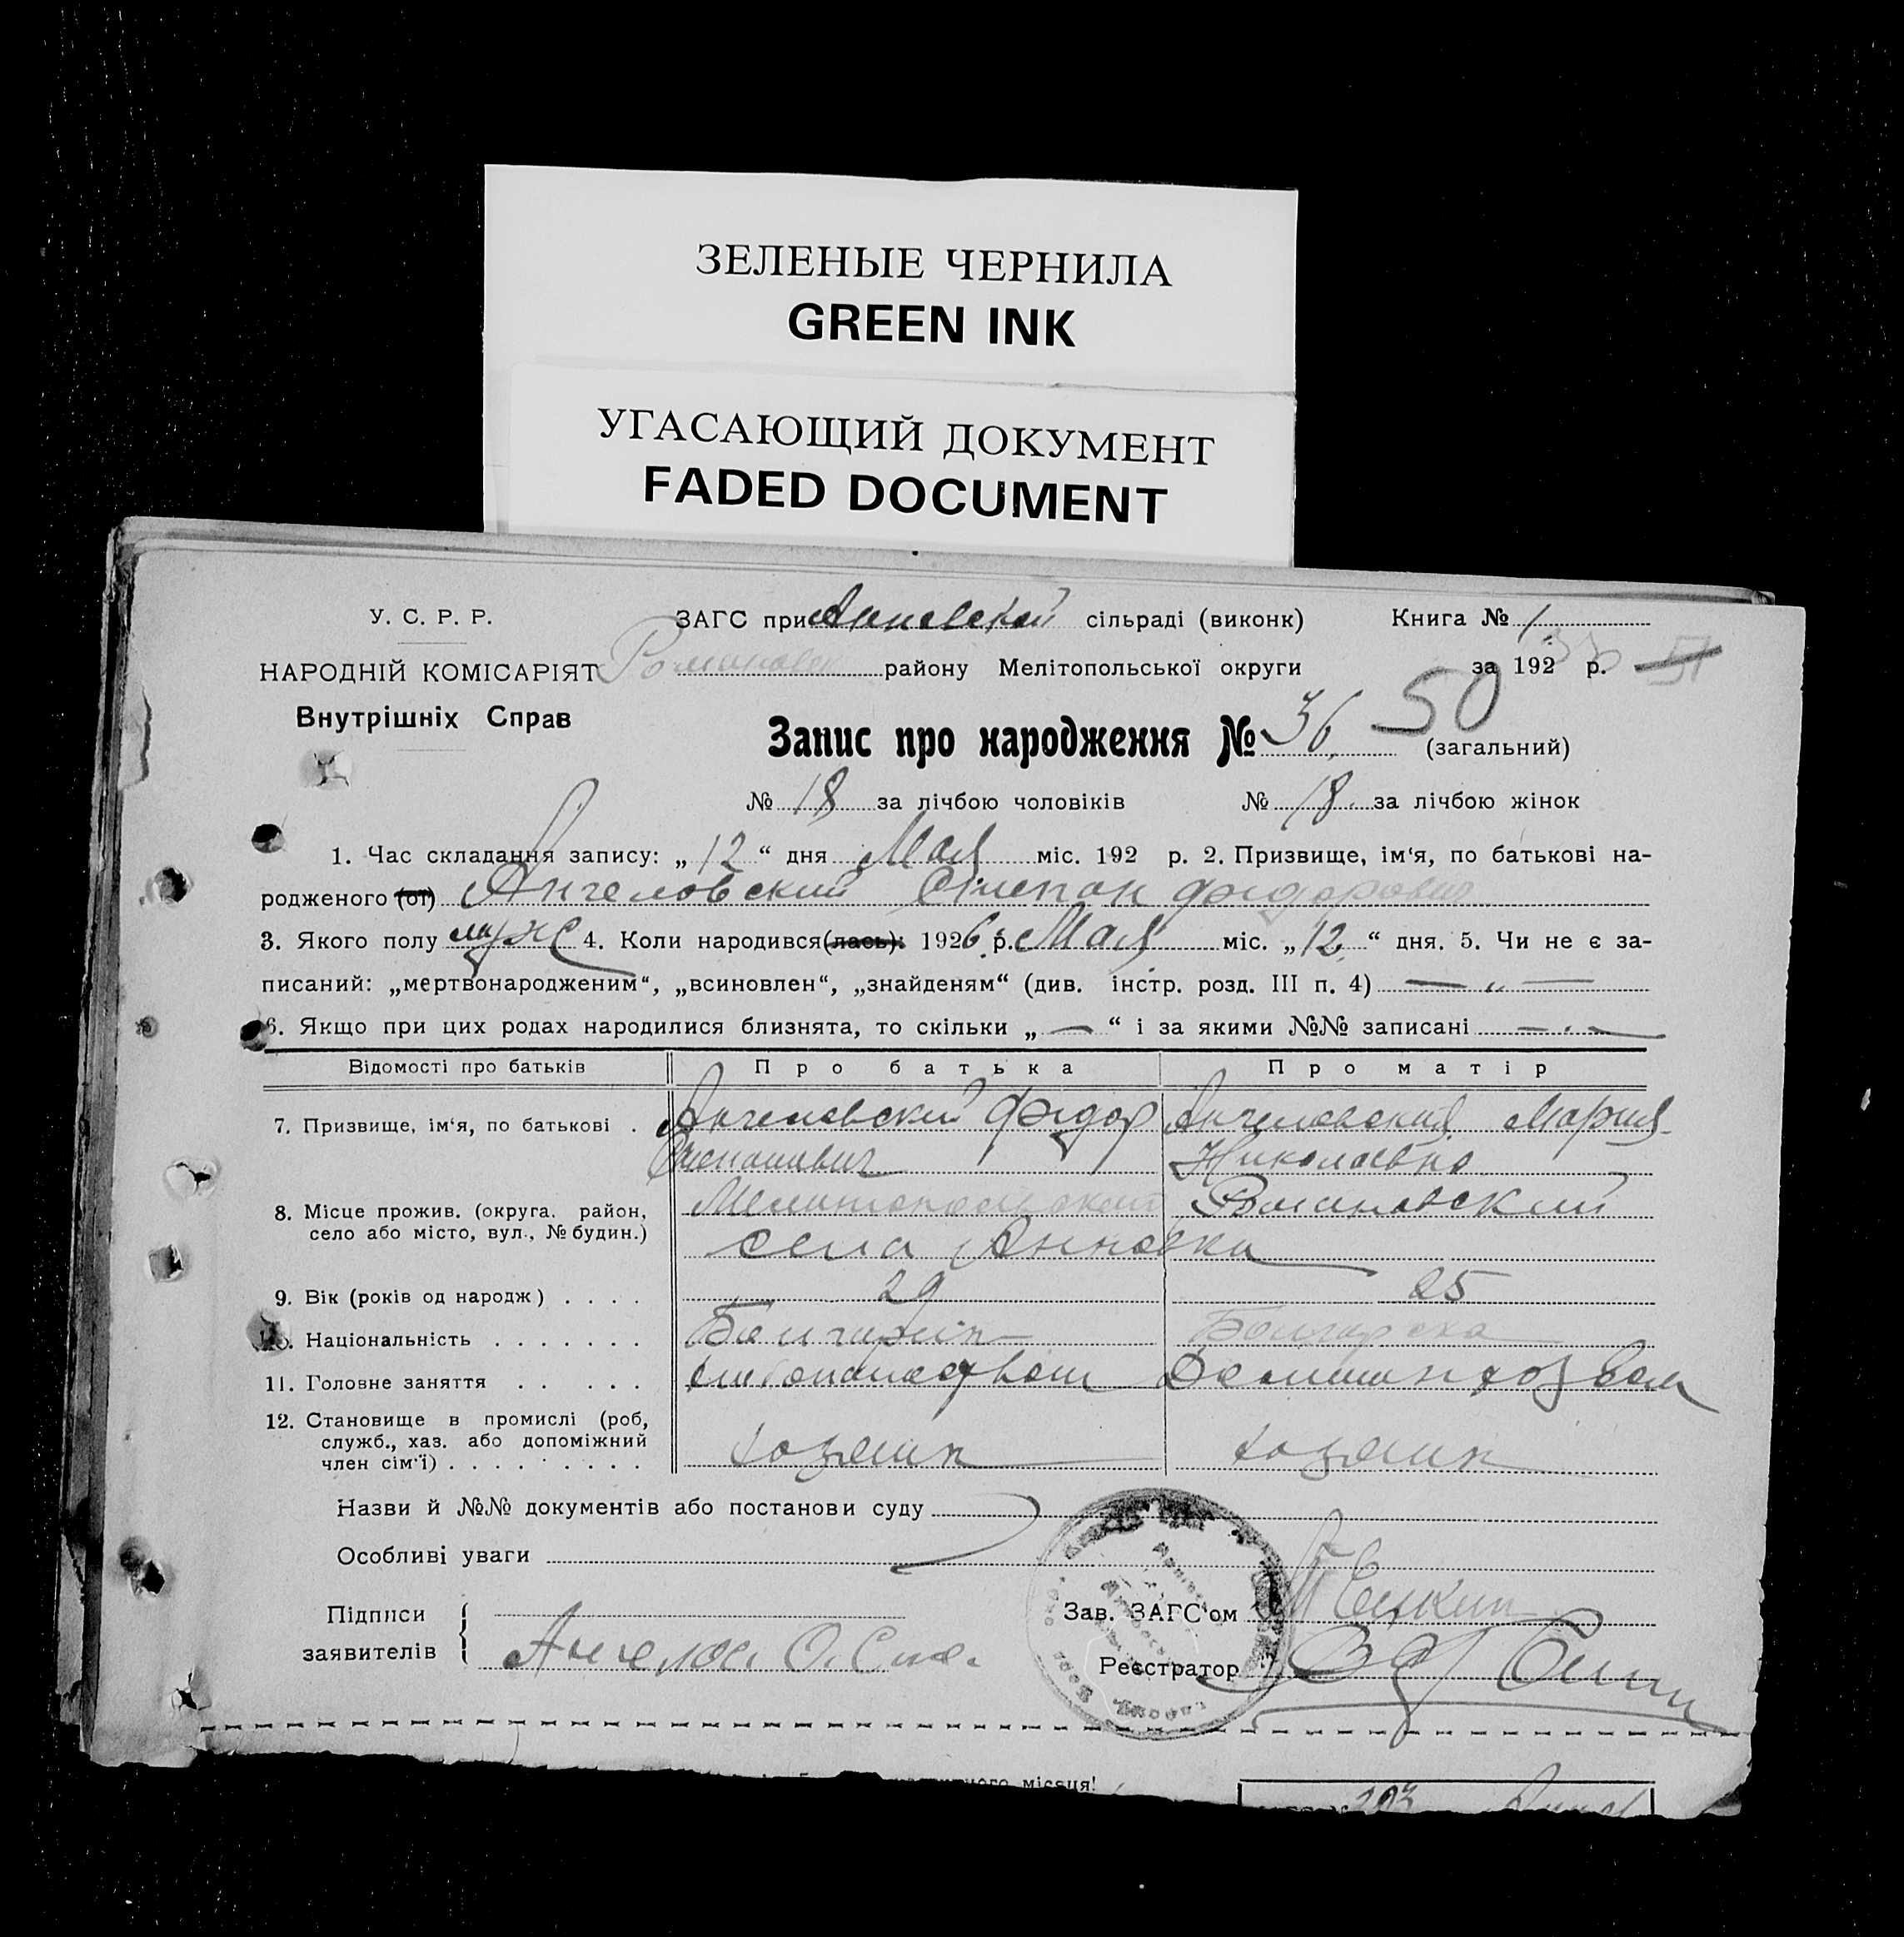 ЗЕЛЕНЫЕ ЧЕРНИЛА
GREEN INK
УГАСАЮЩИЙ ДОКУМЕНТ
FADED DOCUMENT
У. С. Р. Р. ЗАГС при Анновской сільраді (виконк) Книга № 1
НАРОДНІЙ КОМІСАРІЯТ Романовск району Мелітопольської округи за 192 р. 51
Внутрішніх Справ
Запис про народження № 36 50 (загальний)
№ 18 за лічбою чоловіків № 18 за лічбою жінок
1. Час складання запису: „ 12 “ дня Мая міс. 192 р. 2. Призвище, ім‘я, по батькові на-
родженого (от) Ангеловский Степан Федорович
3. Якого полу муж 4. Коли народився (лась): 1926 р. Мая міс. „ 12 “ дня. 5. Чи не є за-
писаний: „мертвонародженим“, „всиновлен“, „знайденям“ (див. інстр. розд. III п. 4) — „ —
6. Якщо при цих родах народилися близнята, то скільки „ — “ і за якими №№ записані — „ —
Відомості про батьків Про батька Про матір
7. Призвище, ім‘я, по батькові . Ангеловский Федор Ангеловская Мария
Степанович Николаевна
8. Місце прожив. (округа, район, Мелитопольский Романовский
село або місто, вул., № будин.) села Анновка
9. Вік (років од народж) . . . . 29 25
10. Національність . . . . . . . Болгарин Болгарска
11. Головне заняття . . . . . хлебопашество Домашн хозвом
12. Становище в промислі (роб,
служб., хаз. або допоміжний хозяин хозяин
член сім‘ї) . . . . . . . . .
Назви й №№ документів або постанови суду
Особливі уваги
Підписи Зав. ЗАГС‘ом
заявителів Реєстратор
місяця!
203